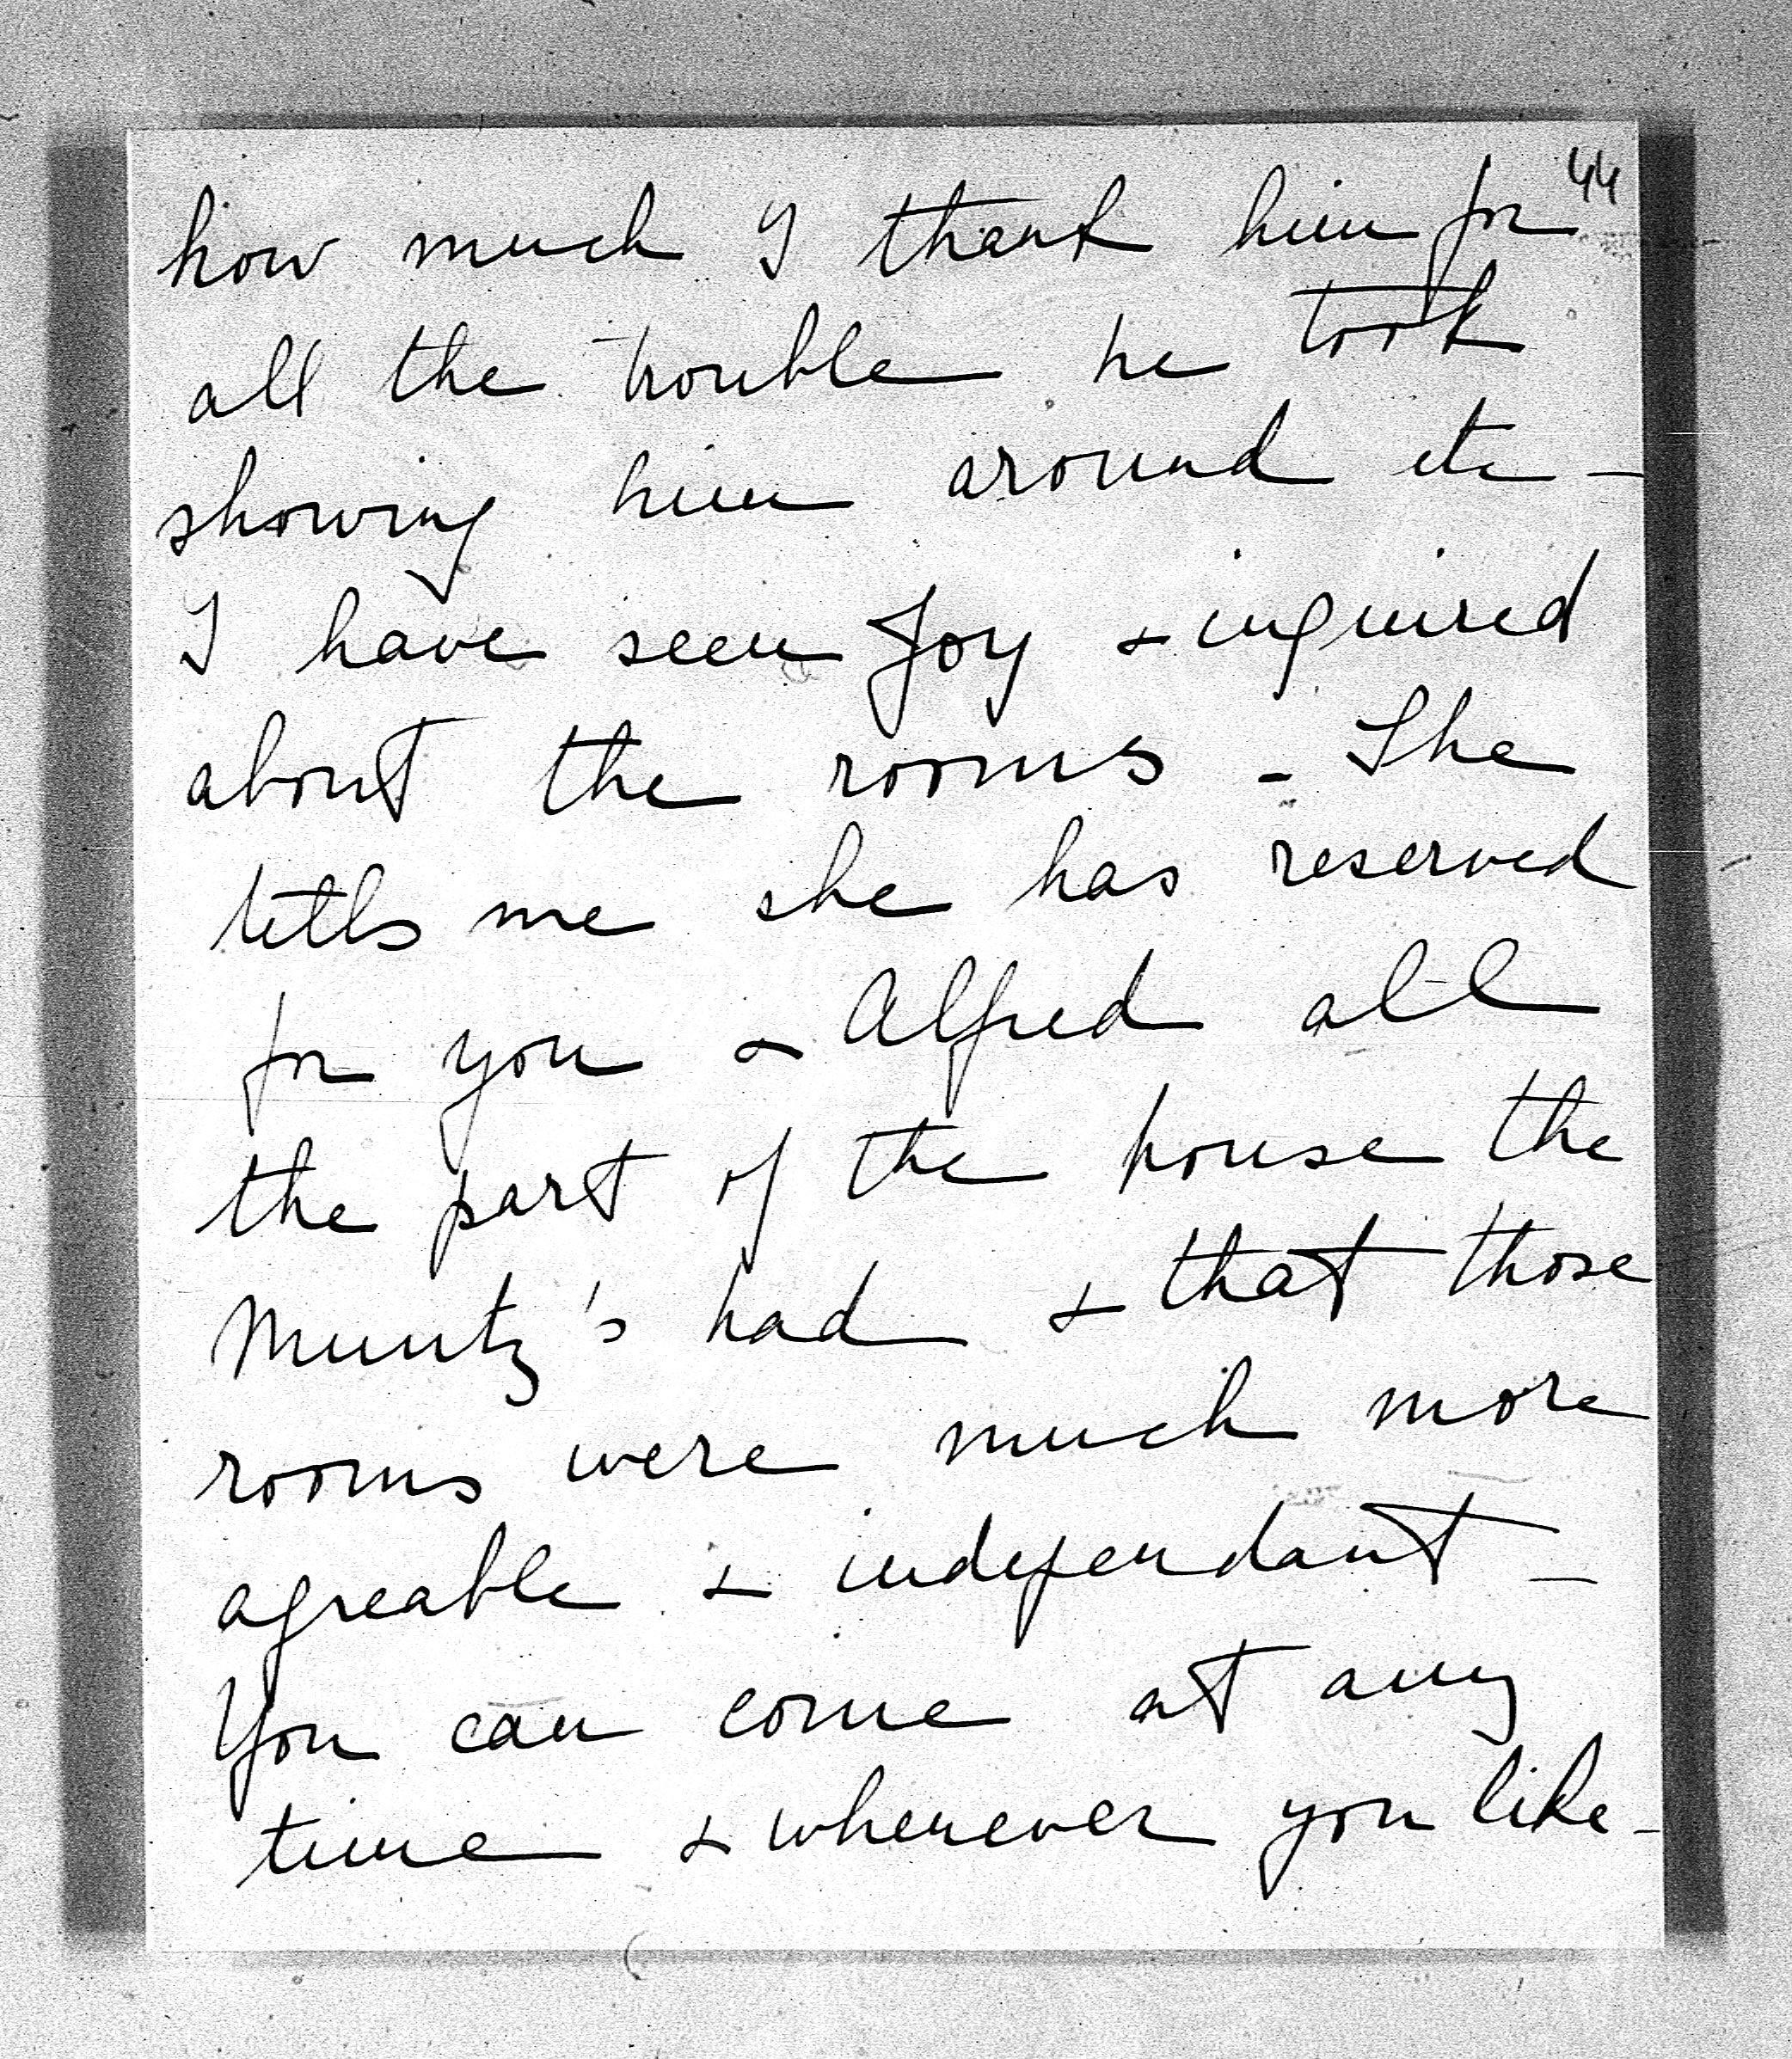 44
how much I thank him for
all the trouble he took
showing him around etc -
I have seen Joy & inquired
about the rooms - She
tells me she has reserved
for you & Alfred all
the part of the house the
Muntz's had & that those
rooms were much more
agreable & independant -
You can come at any
time & whenever you like -